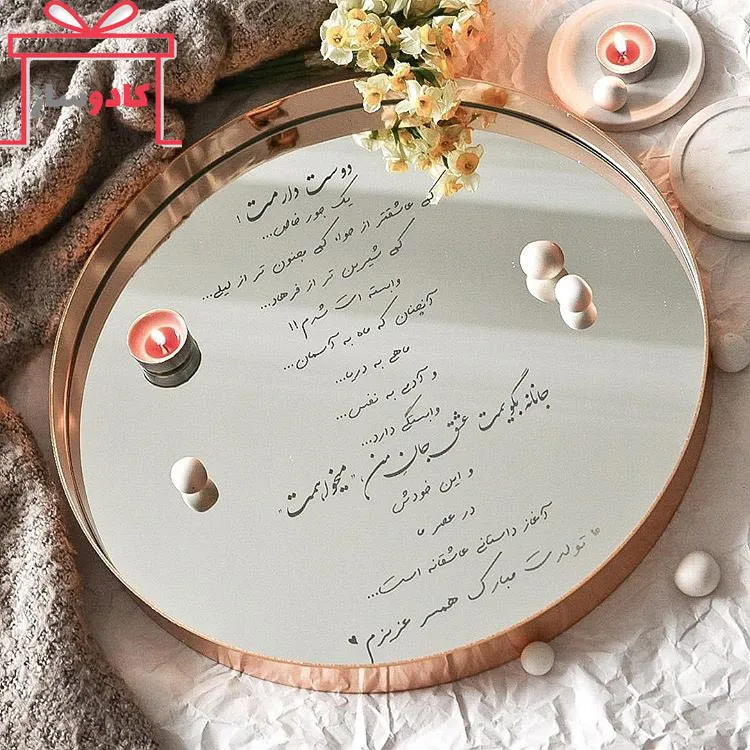 کادوساز
دوست دارمت !
یک جور خاص...
که عاشقتر از حوا، که مجنون تر از لیلی...
که شیرین تر از فرهاد...
وابسته ات شدم !!
آنچنان که ماه به آسمان...
ماهی به دریا...
و آدمی به نفس...
وابستگی دارد...
جانانه بگویمت عشق جان من، "میخواهمت"
و این خودش
در عصر ما
آغاز داستانی عاشقانه است...
تولدت مبارک همسر عزیزم ♥